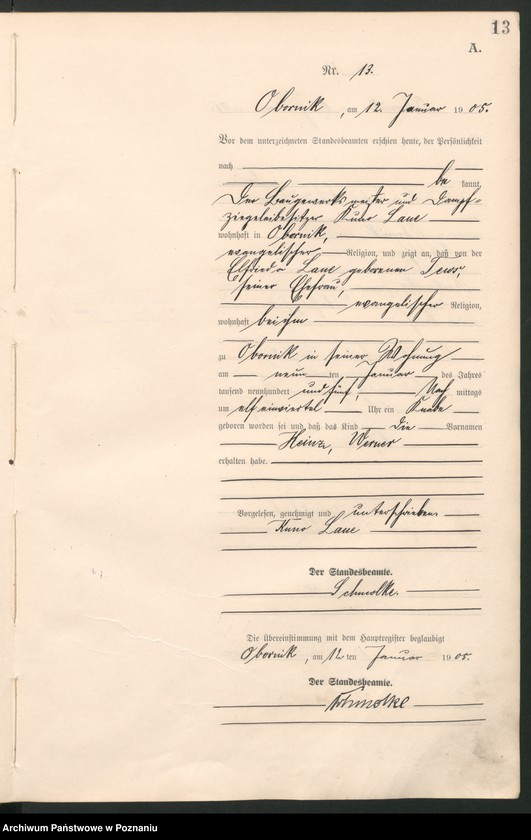 13
A.
Nr. 13.
Obornik, am 12. Januar 1905.
Vor dem unterzeichneten Standesbeamten erschien heute, der Persönlichkeit
nach
be kannt,
Der Baugewerksmeister und Dampf-
ziegeleibesitzer Kuno Laue
wohnhaft in Obornik,
evangelischer Religion, und zeigt an, daß von der
Elfriede Laue geborenen
seiner Ehefrau,
evangelischer Religion,
wohnhaft bei ihm
zu Obornik in seiner Wohnung
am neun ten Januar des Jahres
tausend neunhundert und fünf, Nach mittags
um elf einviertel Uhr ein Knabe
geboren worden sei und daß das Kind die Vornamen
Heinz, Werner
erhalten habe.
Vorgelesen, genehmigt und unterschrieben
Kuno Laue
Der Standesbeamte.
Schmolke.
Die Übereinstimmung mit dem Hauptregister beglaubigt
Obornik, am 12 ten Januar 1905.
Der Standesbeamte.
Schmolke
Archiwum Państwowe w Poznaniu